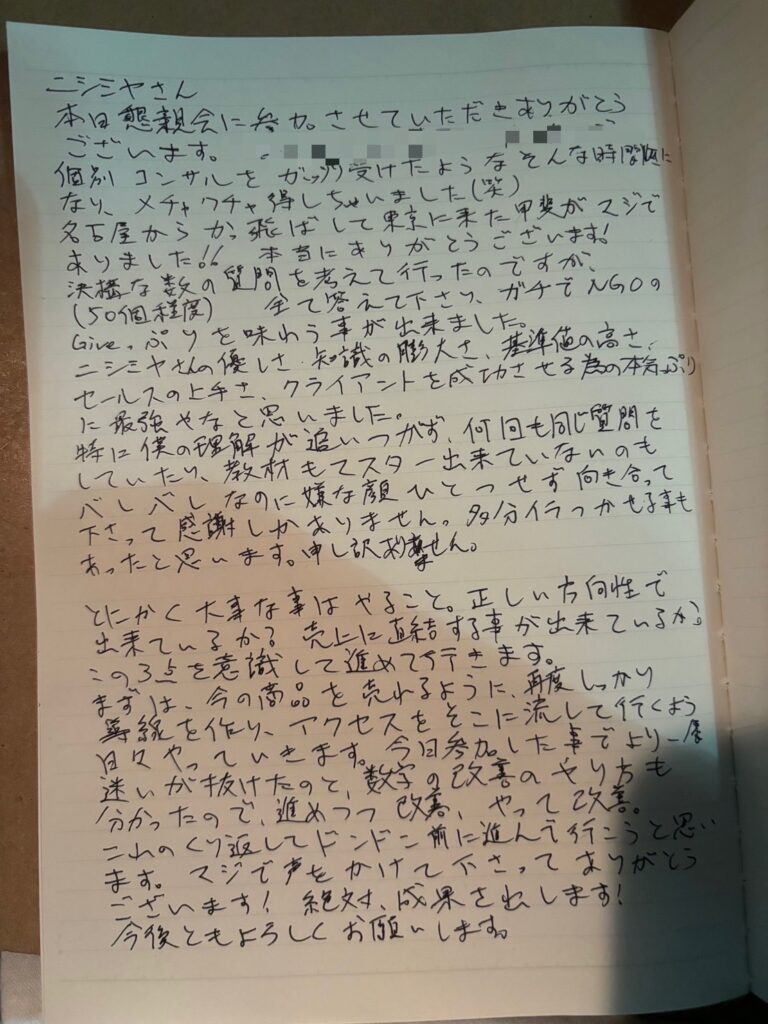 ニシミヤさん
本日懇親会に参加させていただきありがとう
ございます。
個別コンサルをガッツリ受けたようなそんな時間に
なり、メチャクチャ得しちゃいました(笑)
名古屋からかっ飛ばして東京に来た甲斐がマジで
ありました!! 本当にありがとうございます!
決構な数の質問を考えて行ったのですが、
(50個程度) 全て答えて下さり、ガチでNGOの
Giveっぷりを味わう事が出来ました。
ニシミヤさんの優しさ、知識の膨大さ、基準値の高さ、
セールスの上手さ、クライアントを成功させる為の本気っぷり
に最強やなと思いました。
特に僕の理解が追いつがず、何回も同じ質問を
していたり、教材もマスター出来ていないのも
バレバレなのに嫌な顔ひとつせず向き合って
下さって感謝しかありません。多分イラつかせる事も
あったと思います。申し訳ありません。
とにかく大事な事はやること。正しい方向性で
出来ているか?売上に直結する事が出来ているか。
この3点を意識して進めて行きます。
まずは、今の商品を売れるように、再度しっかり
導線を作り、アクセスをそこに流して行くよう
日々やっていきます。今日参加した事でより一層
迷いが抜けたのと、数字の改善のやり方も
分かったので、進めつつ改善、やって改善。
これのくり返してドンドン前に進んで行こうと思い
ます。マジで声をかけて下さってありがとう
ございます!絶対、成果を出します!
今後ともよろしくお願いします。